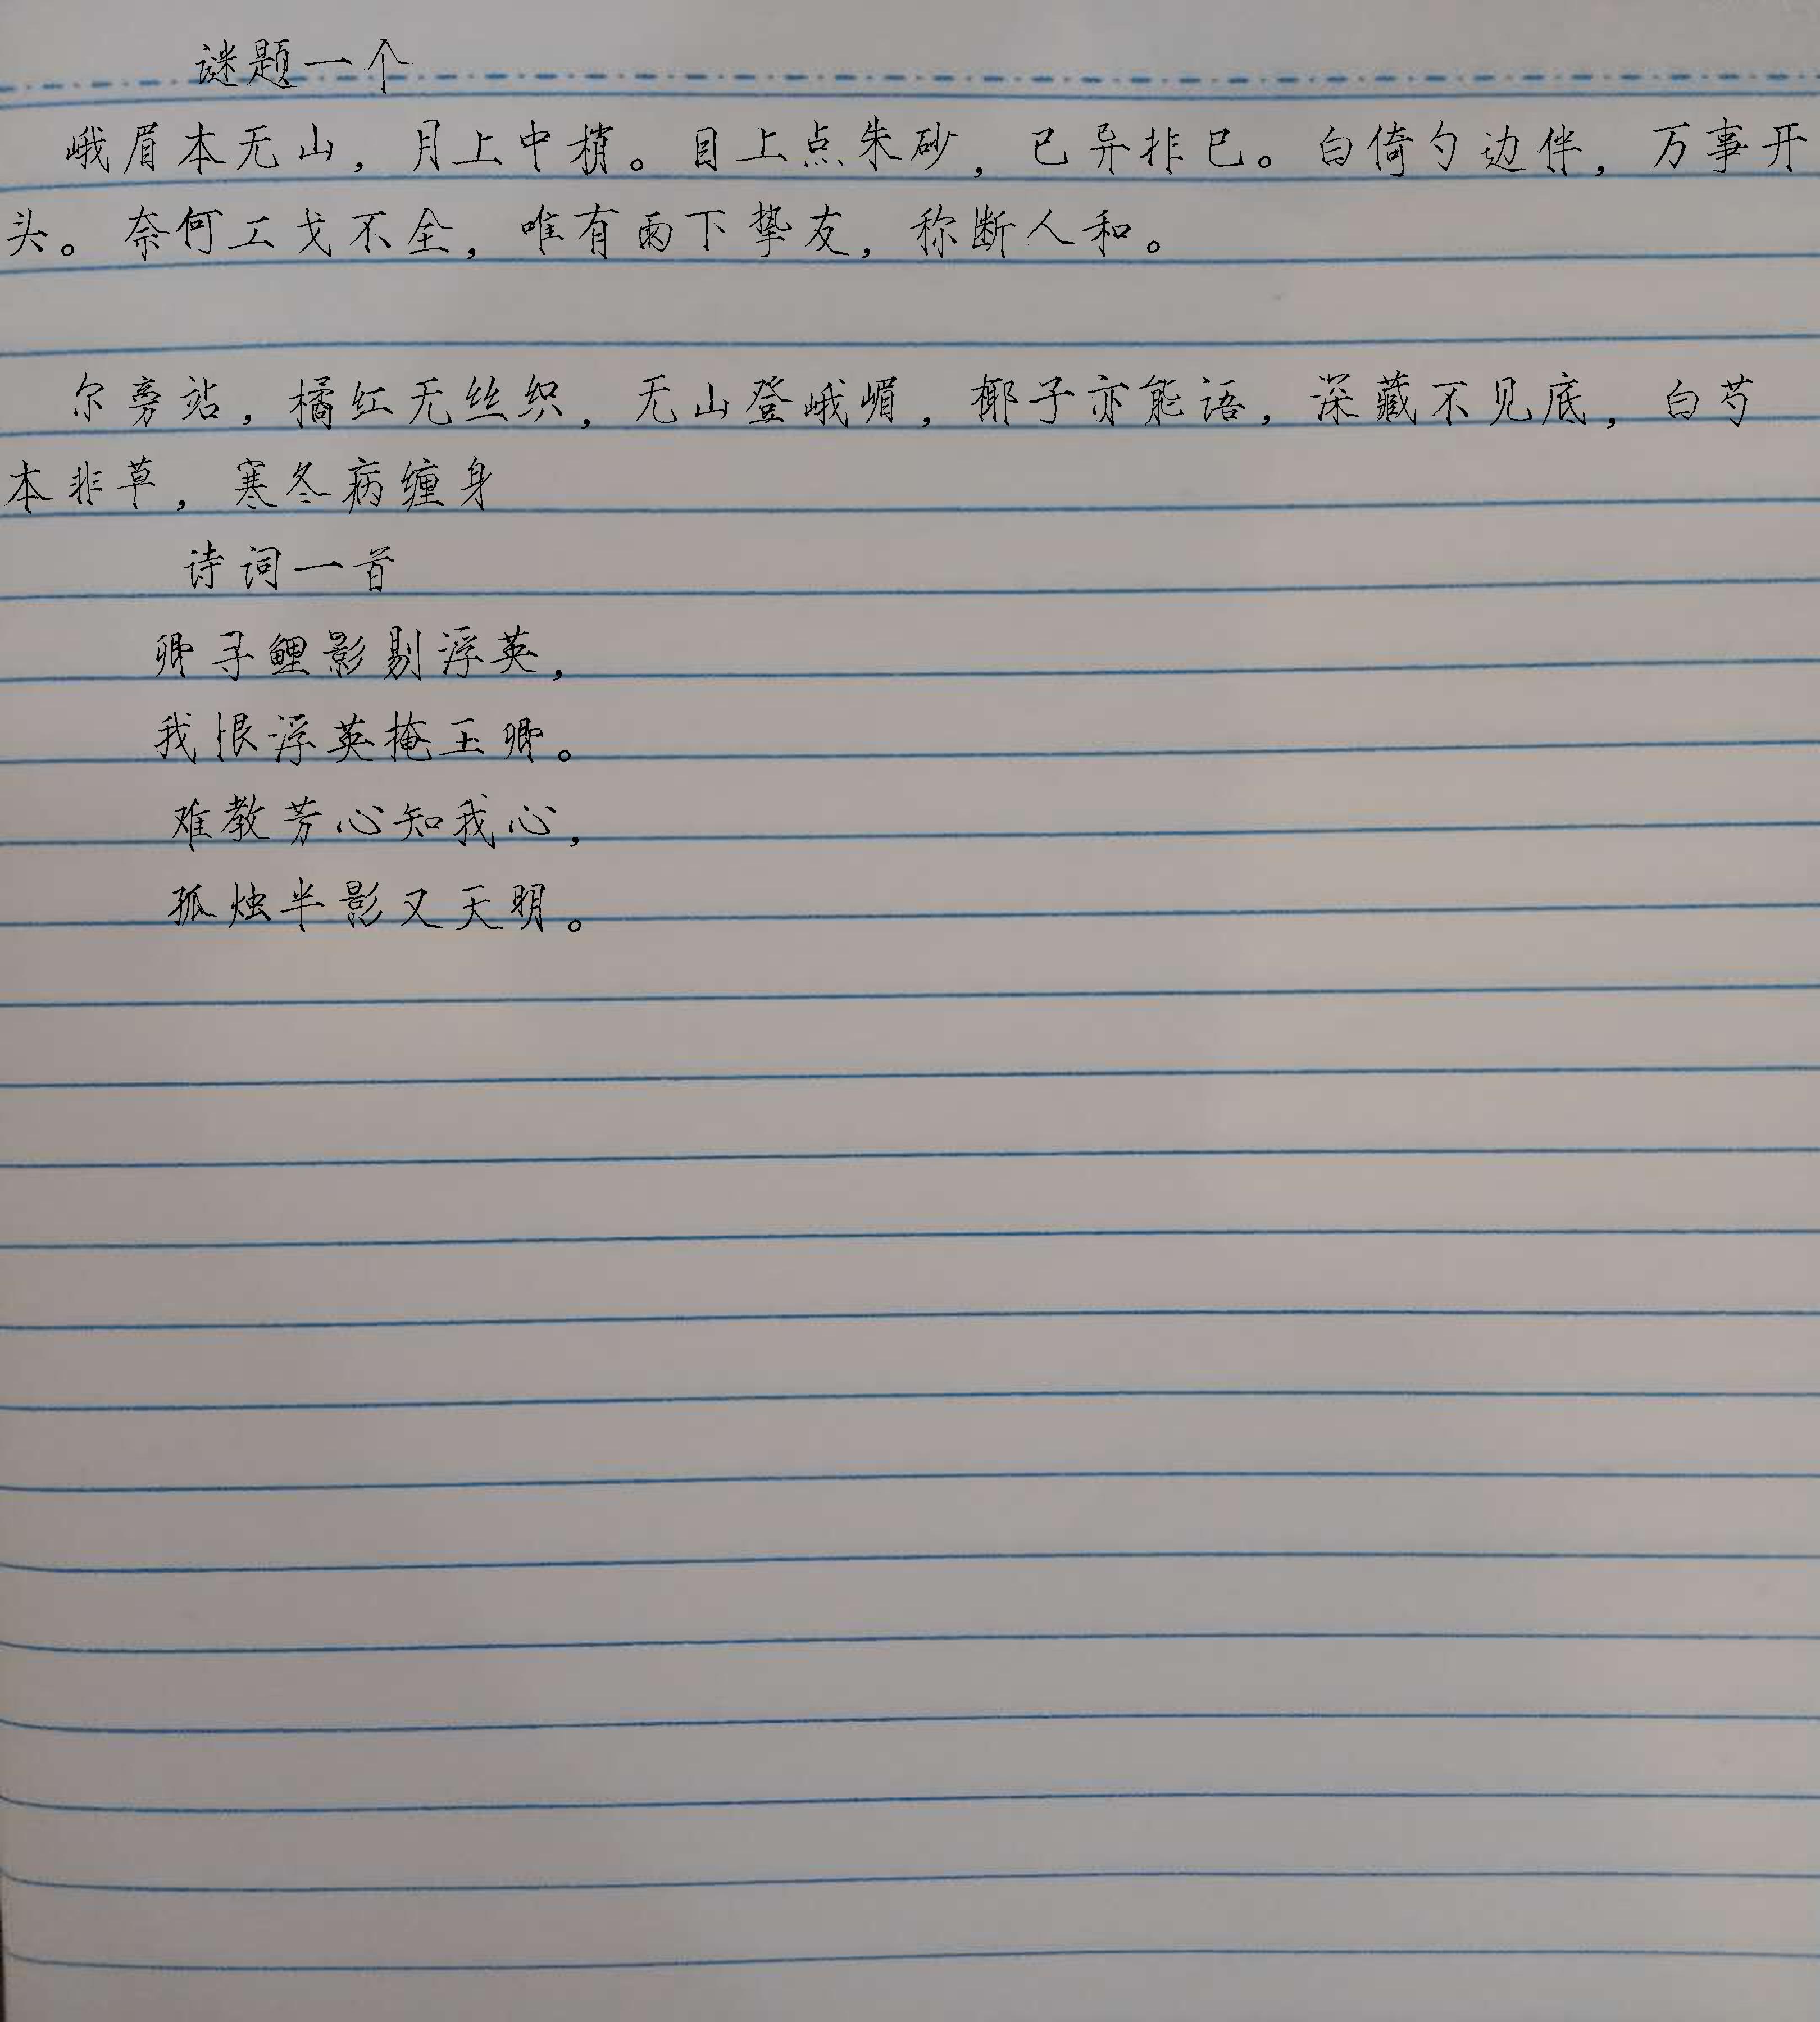 谜题一个
峨眉本无山，月上中梢。目上点朱砂，已异非巳。白倚勺边伴，万事开
头。奈何工戈不全，唯有雨下挚友，称断人和。
尔旁站，橘红无丝织，无山登峨嵋，椰子亦能语，深藏不见底，白芍
本非草，寒冬病缠身
诗词一首
卿寻鲤影剔浮英，
我恨浮英掩玉卿。
难教芳心知我心，
孤烛半影又天明。